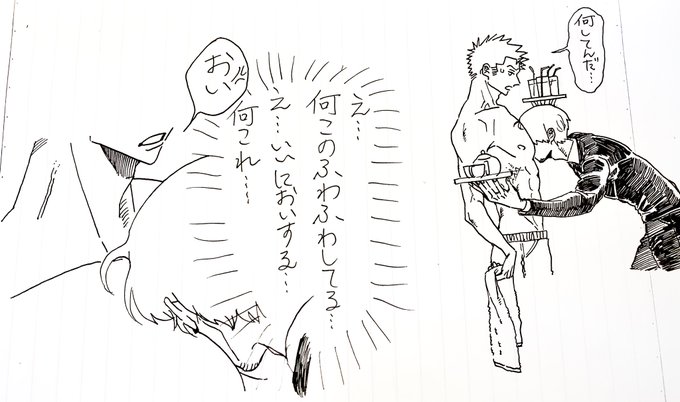 何してんだ…
え…
何このふわふわしてる…
え…いいにおいする…
何これ…
おい